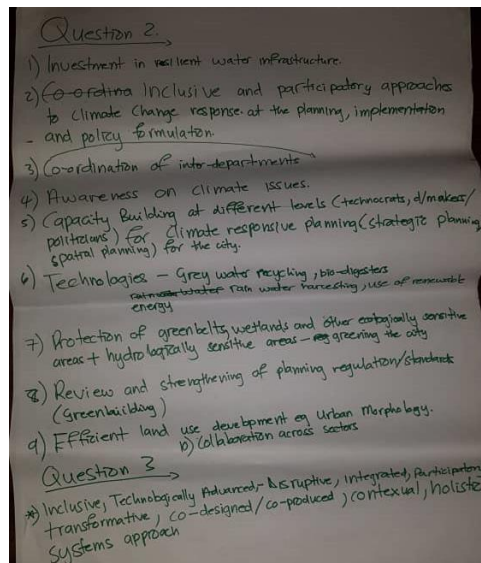 Question 2.
1) Investment in resilient water infrastructure.
2) Co-ordina Inclusive and participatory approaches
to climate change response at the planning, implementation
- and policy formulation.
3) Co-ordination of inter-departments
4) Awareness on climate issues.
5) Capacity Building at different levels (technocrats, d/makers/
politicians) for climate responsive planning (strategic planning
spatial planning) for the city.
6) Technologies - Grey water recycling, bio-digesters
water rain water harvesting, use of renewable
energy
7) Protection of greenbelts, wetlands and other ecologically sensitive
areas + hydrologically sensitive areas - greening the city
8) Review and strengthening of planning regulation/standards
(Greenbuilding)
9) Efficient land use development eg Urban Morphology.
10) Collaboration across sectors
Question 3
*) Inclusive, Technologically Advanced, - Disruptive, Integrated, Participatory
transformative, co-designed/co-produced, contexual, holistic
systems approach